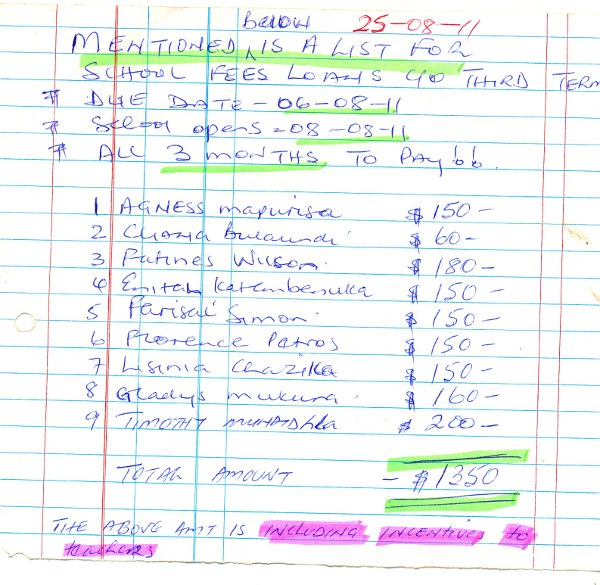 25-08-11
MENTIONED Below IS A LIST FOR
SCHOOL FEES LOANS 40 THIRD TERM
# DUE DATE - 06-08-11
# School opens = 08-08-11
# ALL 3 MONTHS TO PAY!!
1 AGNESS mapurisa $150-
2 $60-
3 Patines Wilson $180-
4 Katembenuka $150-
5 Parisai Simon $150-
6 Florence Patros $150-
7 Lisinia Chazika $150-
8 Gladys mukuna $160-
9 TIMOTHY $200-
TOTAL AMOUNT - $1350
THE ABOVE AMT IS INCLUDING INCENTIVES to
teachers